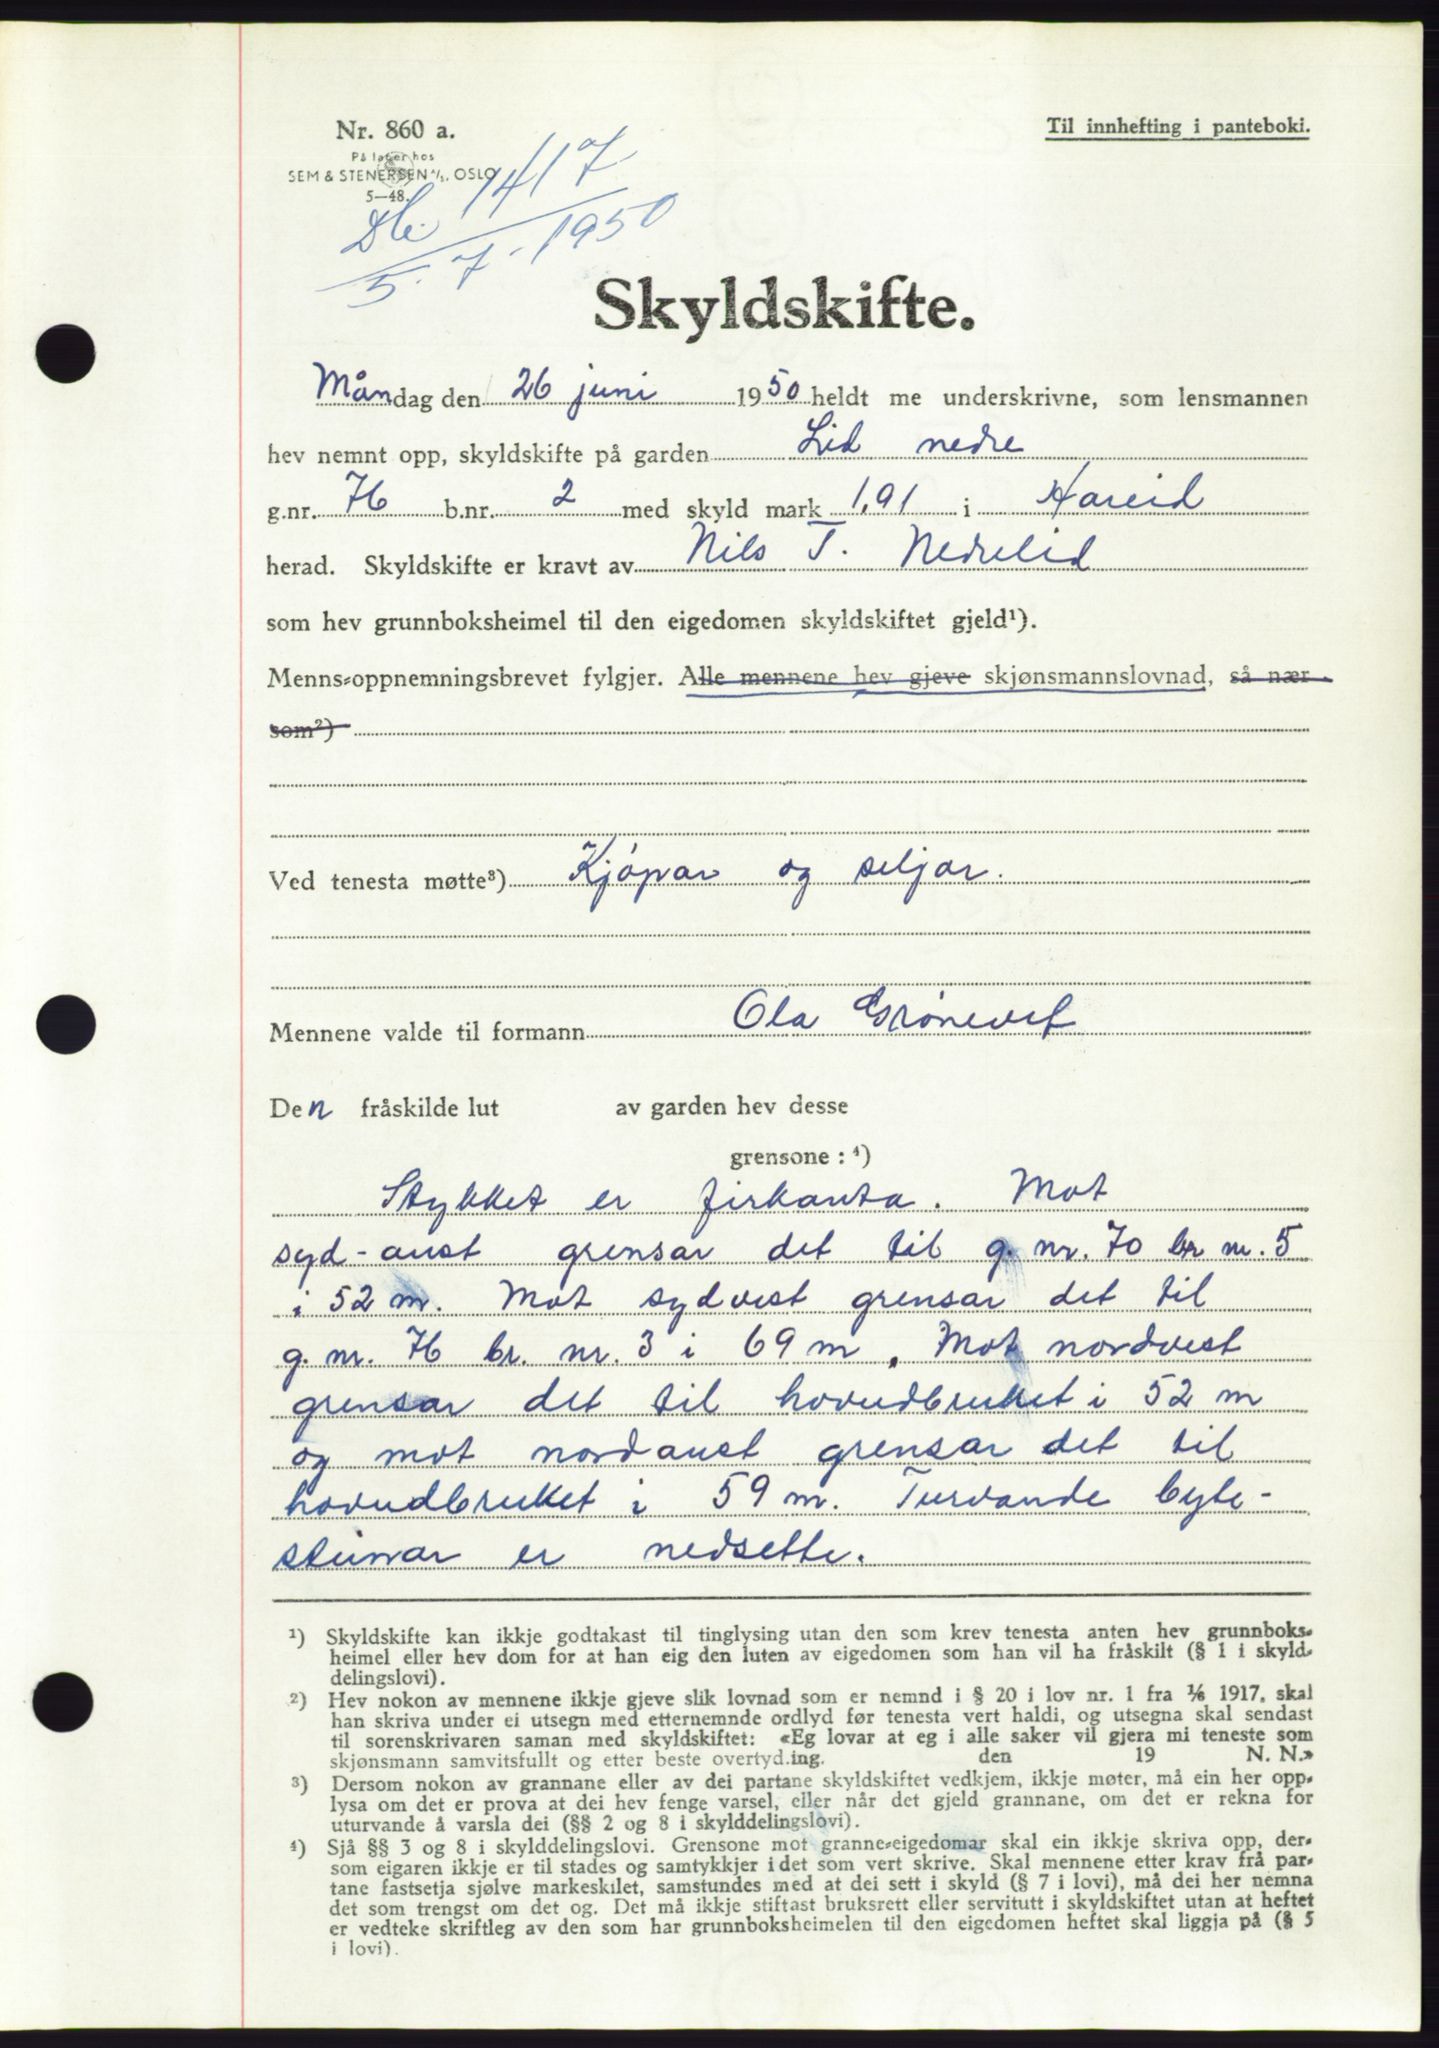 Nr. 860 a.
På lager hos
SEM & STENERSEN A/S, OSLO
5—48.
Til innhefting i panteboki.
1417
5. 7. 1950
Skyldskifte.
Måndag den 26 juni 1950 heldt me underskrivne, som lensmannen
hev nemnt opp, skyldskifte på garden Lid nedre
g.nr. 76 b.nr. 2 med skyld mark 1,91 i Hareid
herad. Skyldskifte er kravt av Nils T. Nedrelid
som hev grunnboksheimel til den eigedomen skyldskiftet gjeld¹).
Menns-oppnemningsbrevet fylgjer. Alle mennene hev gjeve skjønsmannslovnad, så nær
som²)
Ved tenesta møtte³) Kjøpar og seljar.
Mennene valde til formann Ola Grønevet
Den fråskilde lut av garden hev desse
grensone: ⁴)
Stykket er firkanta. Mot
syd-aust grensar det til g. nr. 70 br nr. 5
i 52 m. Mot sydvest grensar det til
g. nr. 76 br. nr. 3 i 69 m. Mot nordvest
grensar det til hovudbruket i 52 m
og mot nordaust grensar det til
hovudbruket i 59 m. Turvande byte-
steinar er nedsette.
¹) Skyldskifte kan ikkje godtakast til tinglysing utan den som krev tenesta anten hev grunnboks-
heimel eller hev dom for at han eig den luten av eigedomen som han vil ha fråskilt (§ 1 i skyld-
delingslovi).
²) Hev nokon av mennene ikkje gjeve slik lovnad som er nemnd i § 20 i lov nr. 1 fra 1/6 1917, skal
han skriva under ei utsegn med etternemnde ordlyd før tenesta vert haldi, og utsegna skal sendast
til sorenskrivaren saman med skyldskiftet: «Eg lovar at eg i alle saker vil gjera mi teneste som
skjønsmann samvitsfullt og etter beste overtyding. den 19 N. N.»
³) Dersom nokon av grannane eller av dei partane skyldskiftet vedkjem, ikkje møter, må ein her opp-
lysa om det er prova at dei hev fenge varsel, eller når det gjeld grannane, om det er rekna for
uturvande å varsla dei (§§ 2 og 8 i skylddelingslovi).
⁴) Sjå §§ 3 og 8 i skylddelingslovi. Grensone mot granne-eigedomar skal ein ikkje skriva opp, der-
som eigaren ikkje er til stades og samtykkjer i det som vert skrive. Skal mennene etter krav frå par-
tane fastsetja sjølve markeskilet, samstundes med at dei sett i skyld (§ 7 i lovi), må dei her nemna
det som trengst om det og. Det må ikkje stiftast bruksrett eller servitutt i skyldskiftet utan at heftet
er vedteke skriftleg av den som har grunnboksheimelen til den eigedomen heftet skal liggja på (§ 5
i lovi).